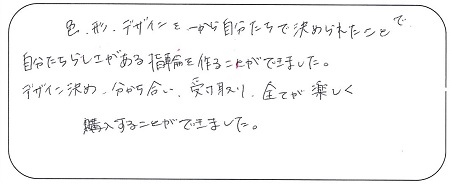 色、形、デザインを一から自分たちで決められたことで
自分たちらしさがある指輪を作ることができました。
デザイン決め、分かち合い、受け取り、全てが楽しく
購入することができました。